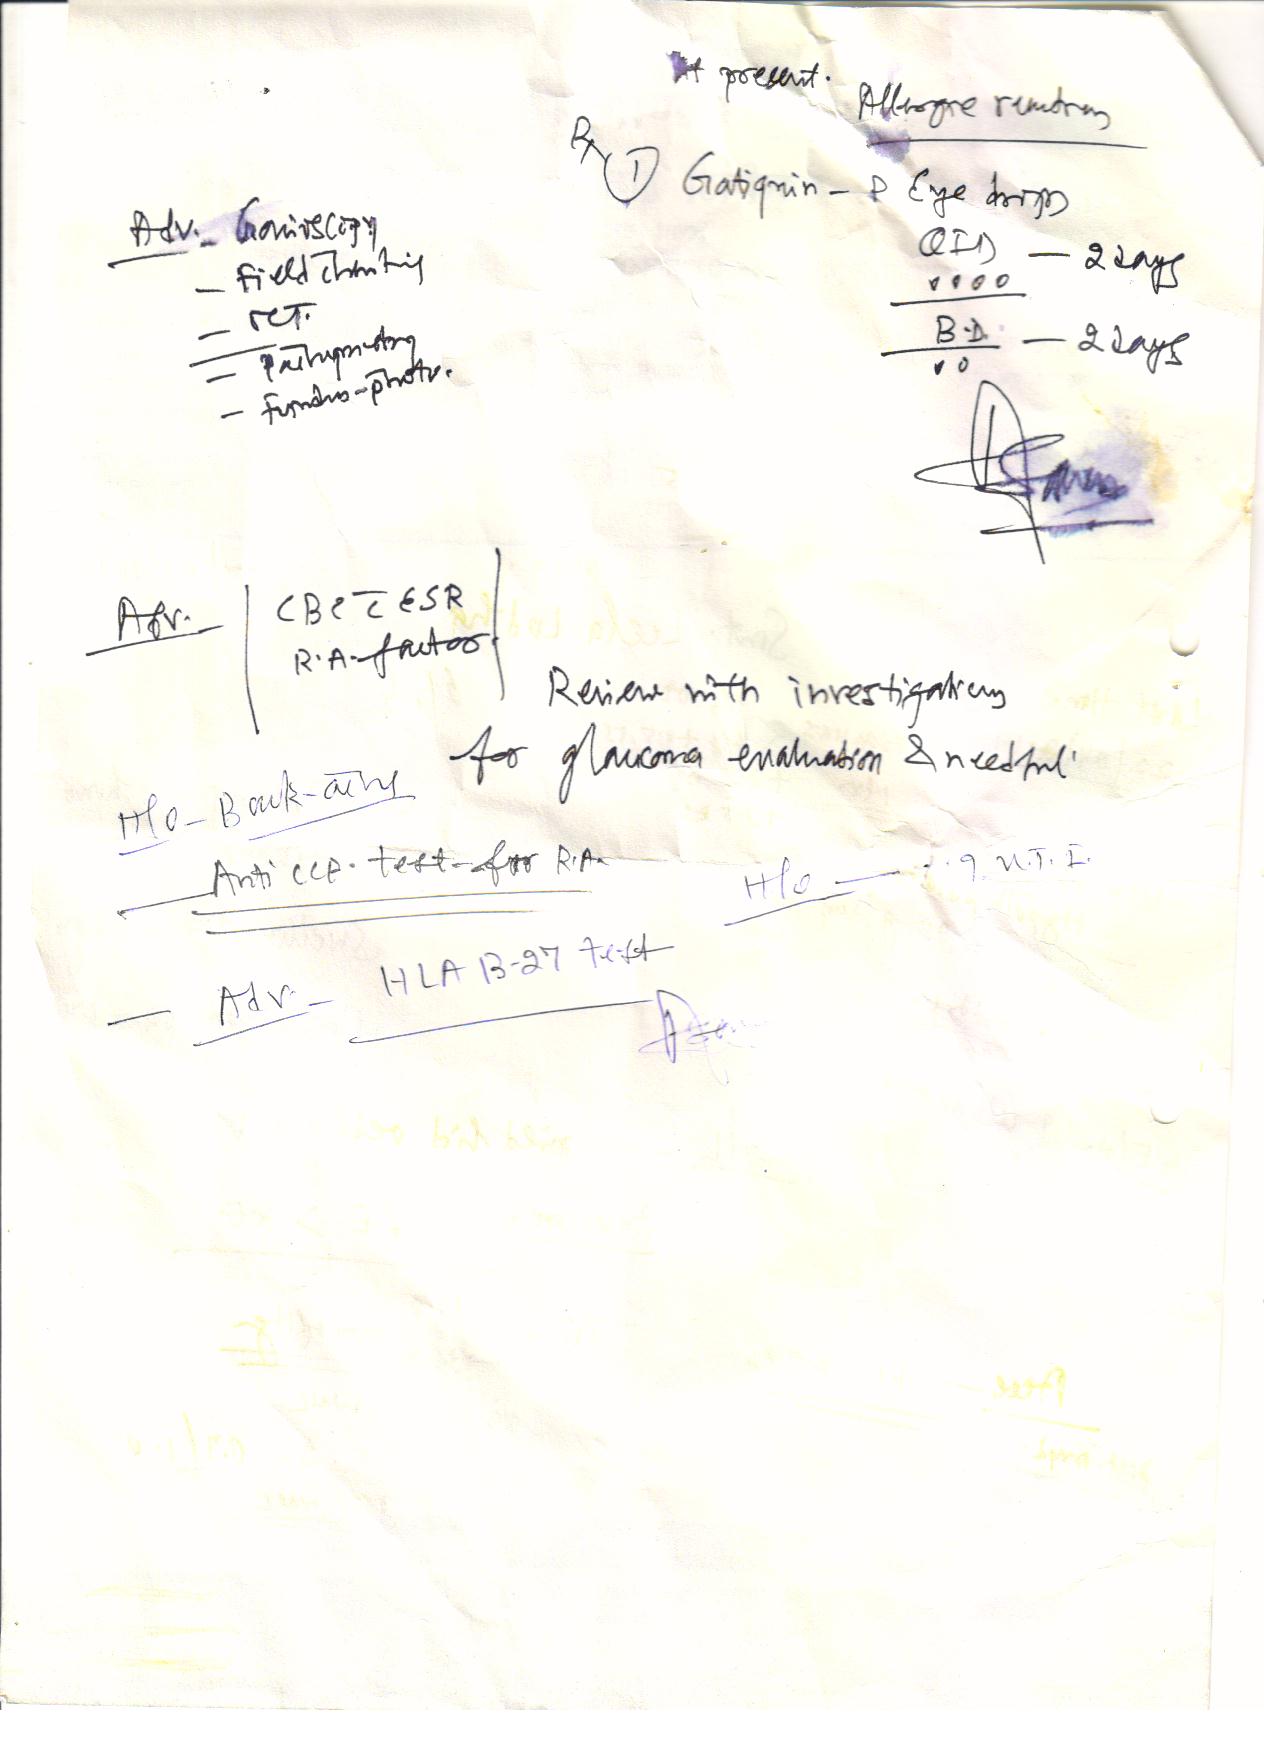 At present.
Rx ① Gatiquin - P Eye drops
QID — 2 days
B.D. — 2 days
Adv. Gonioscopy
- Field charting
- OCT.
- Pachymetry
- Fundus-photo.
Adv. CBC c̅ ESR
R.A. factor
Review with investigations
for glaucoma evaluation & needful
H/o - Back-ache
Anti CCP. test for R.A.
H/o — ? U.T.I.
- Adv. - HLA B-27 test